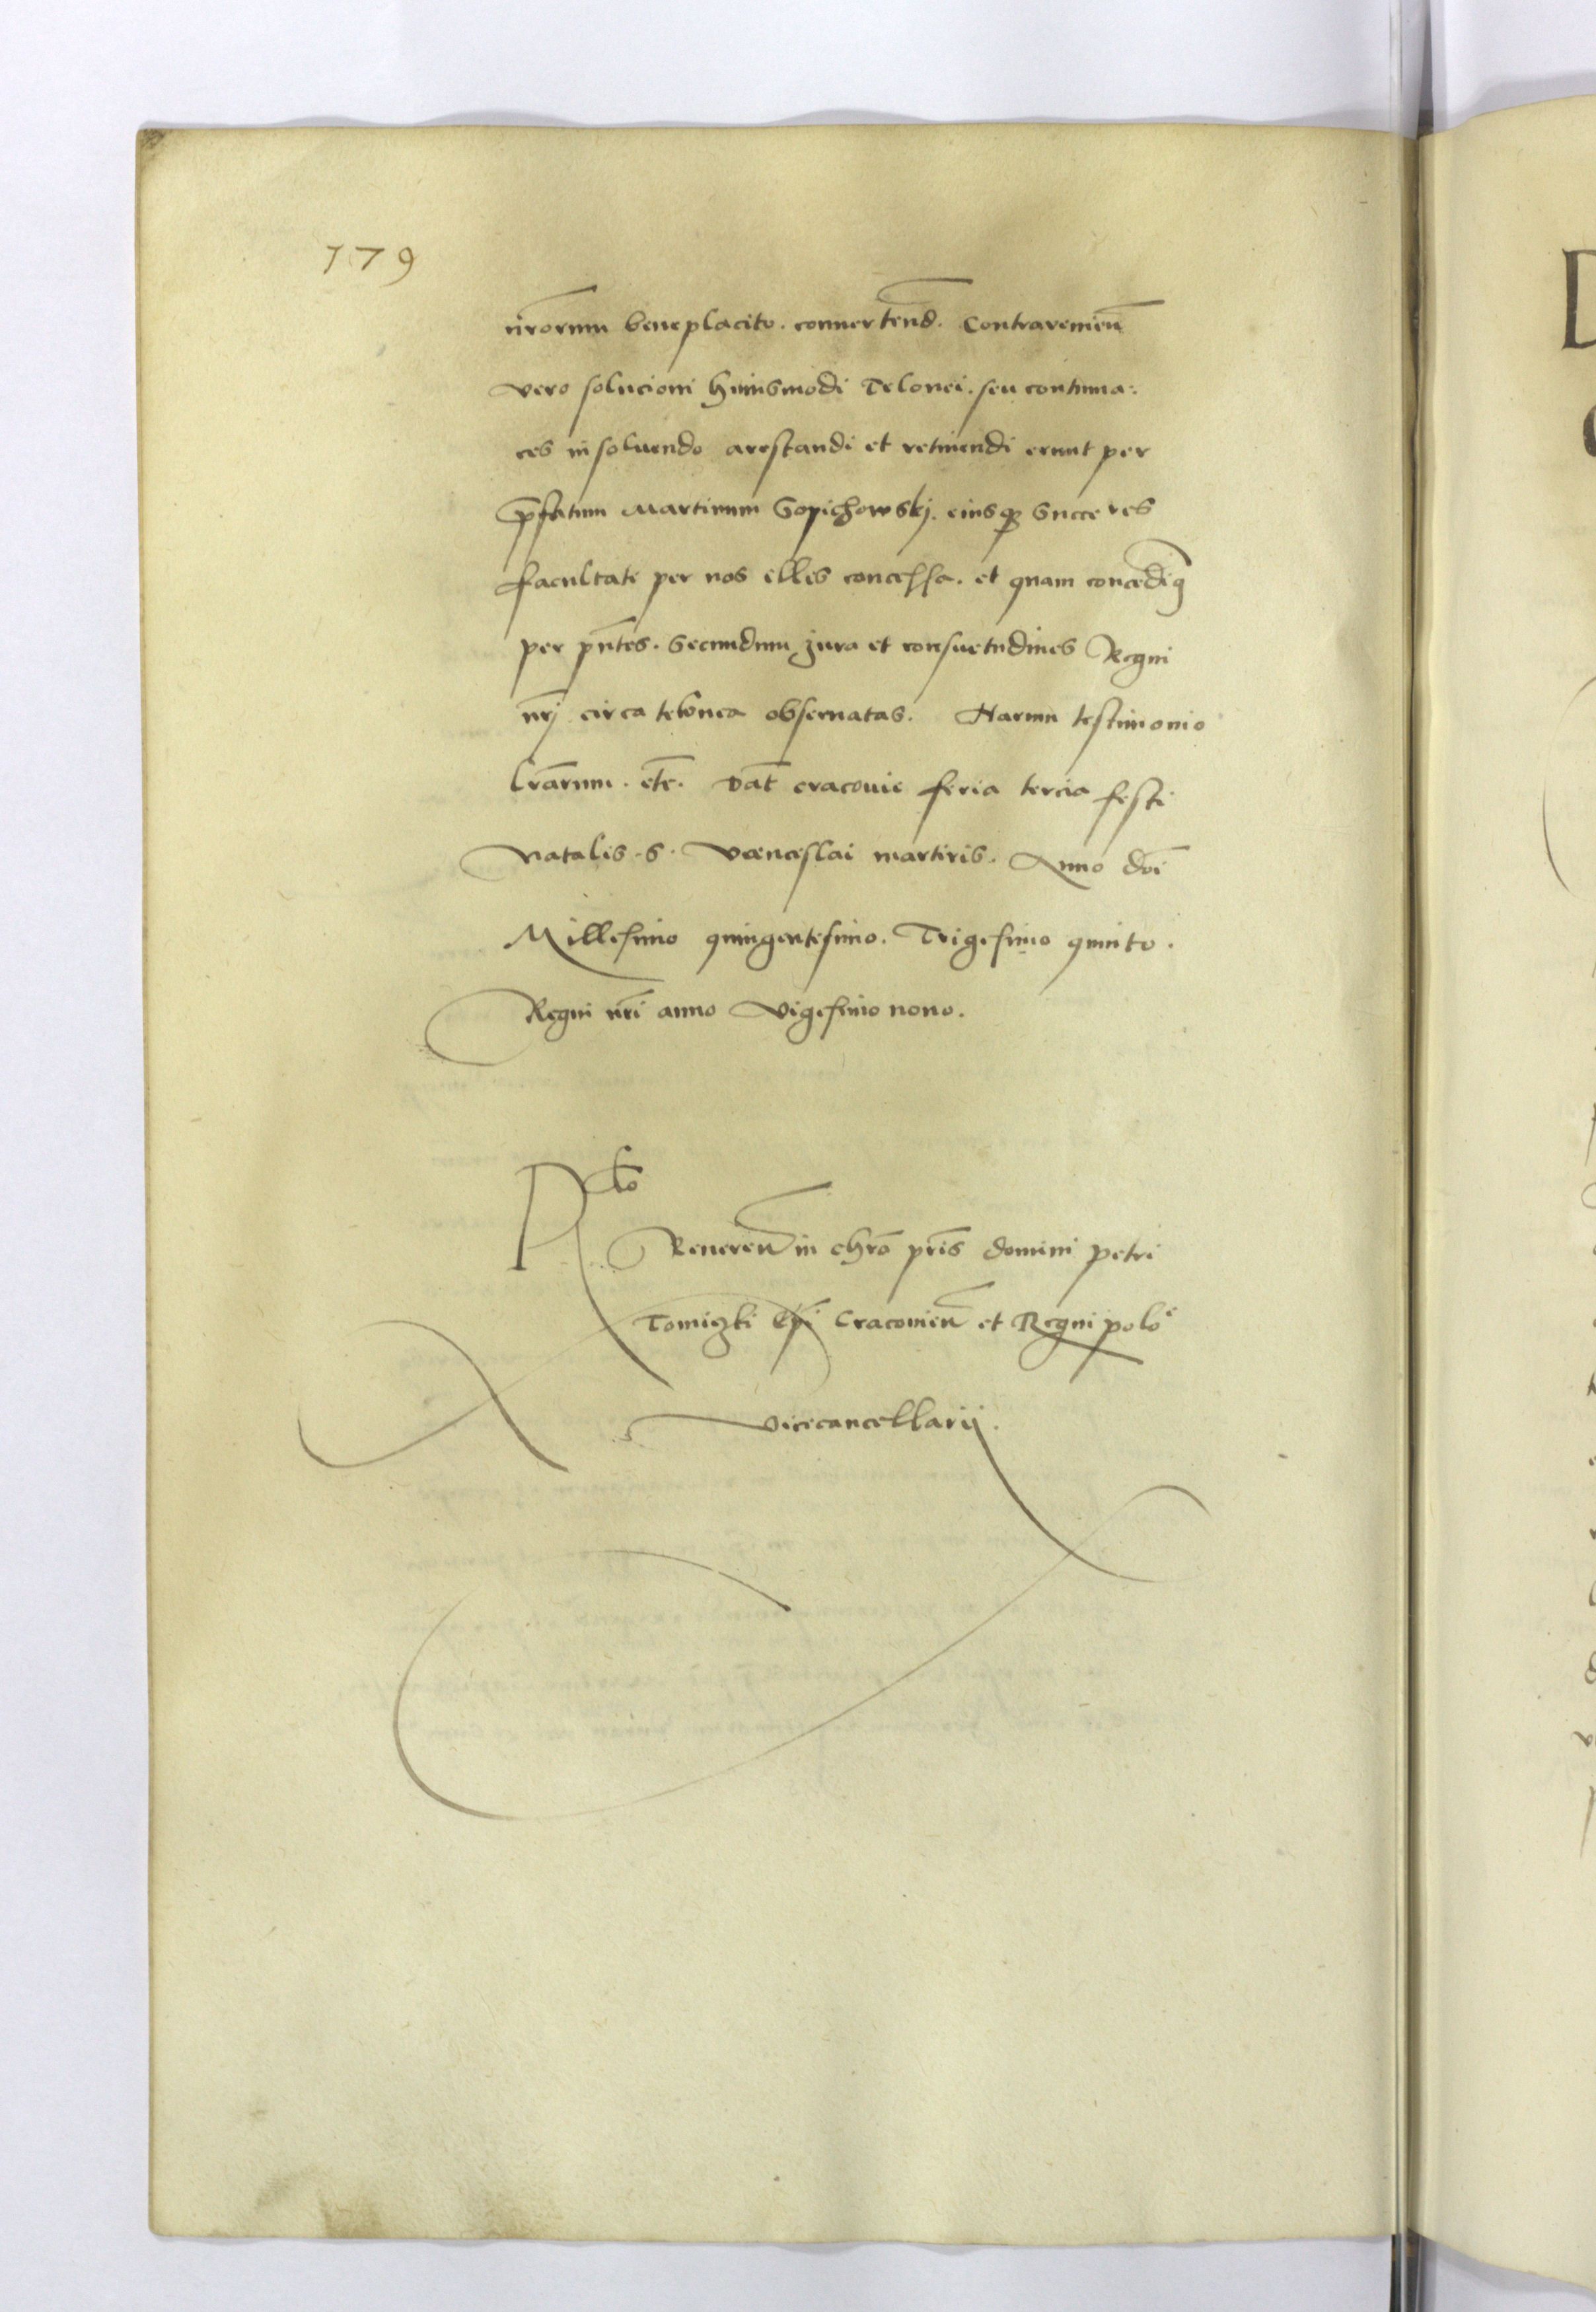 179
nr̄orum beneplacito. conuertend̄. Contravenien̄
vero solucioni huiusmodi Telonei. seu contuma:
ces in soluendo arestandi et retinendi erunt per
p̄fatum Martinum Gopichowskj. eiusq̨ succeres
facultate per nos illis concessa. et quam concedim9
per pn̄tes. Secundum jura et consuetudines Regni
nr̄j circa telonea obseruatas. Harum testimonio
lr̄arum. etc̄. Dat̄ cracovie feria tercia festi
Natalis. S. Venceslai martiris. Anno dn̄i
Millesimo quingentesimo. Trigesimo quinto.
Regni nr̄i anno vigesimo nono.
Rl̄o
Reueren̄ in chr̄o pr̄is domini petri
Tomiczki Ep̄i Cracouien̄ et Regni poloe
vicecancellarij.